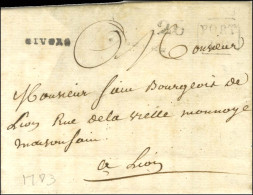 GIVORS
PORT
Monsieur
Monsieur fain Bourgeois de
Lion Rue de la vieille monnoye
maison fain
a Lion
1783